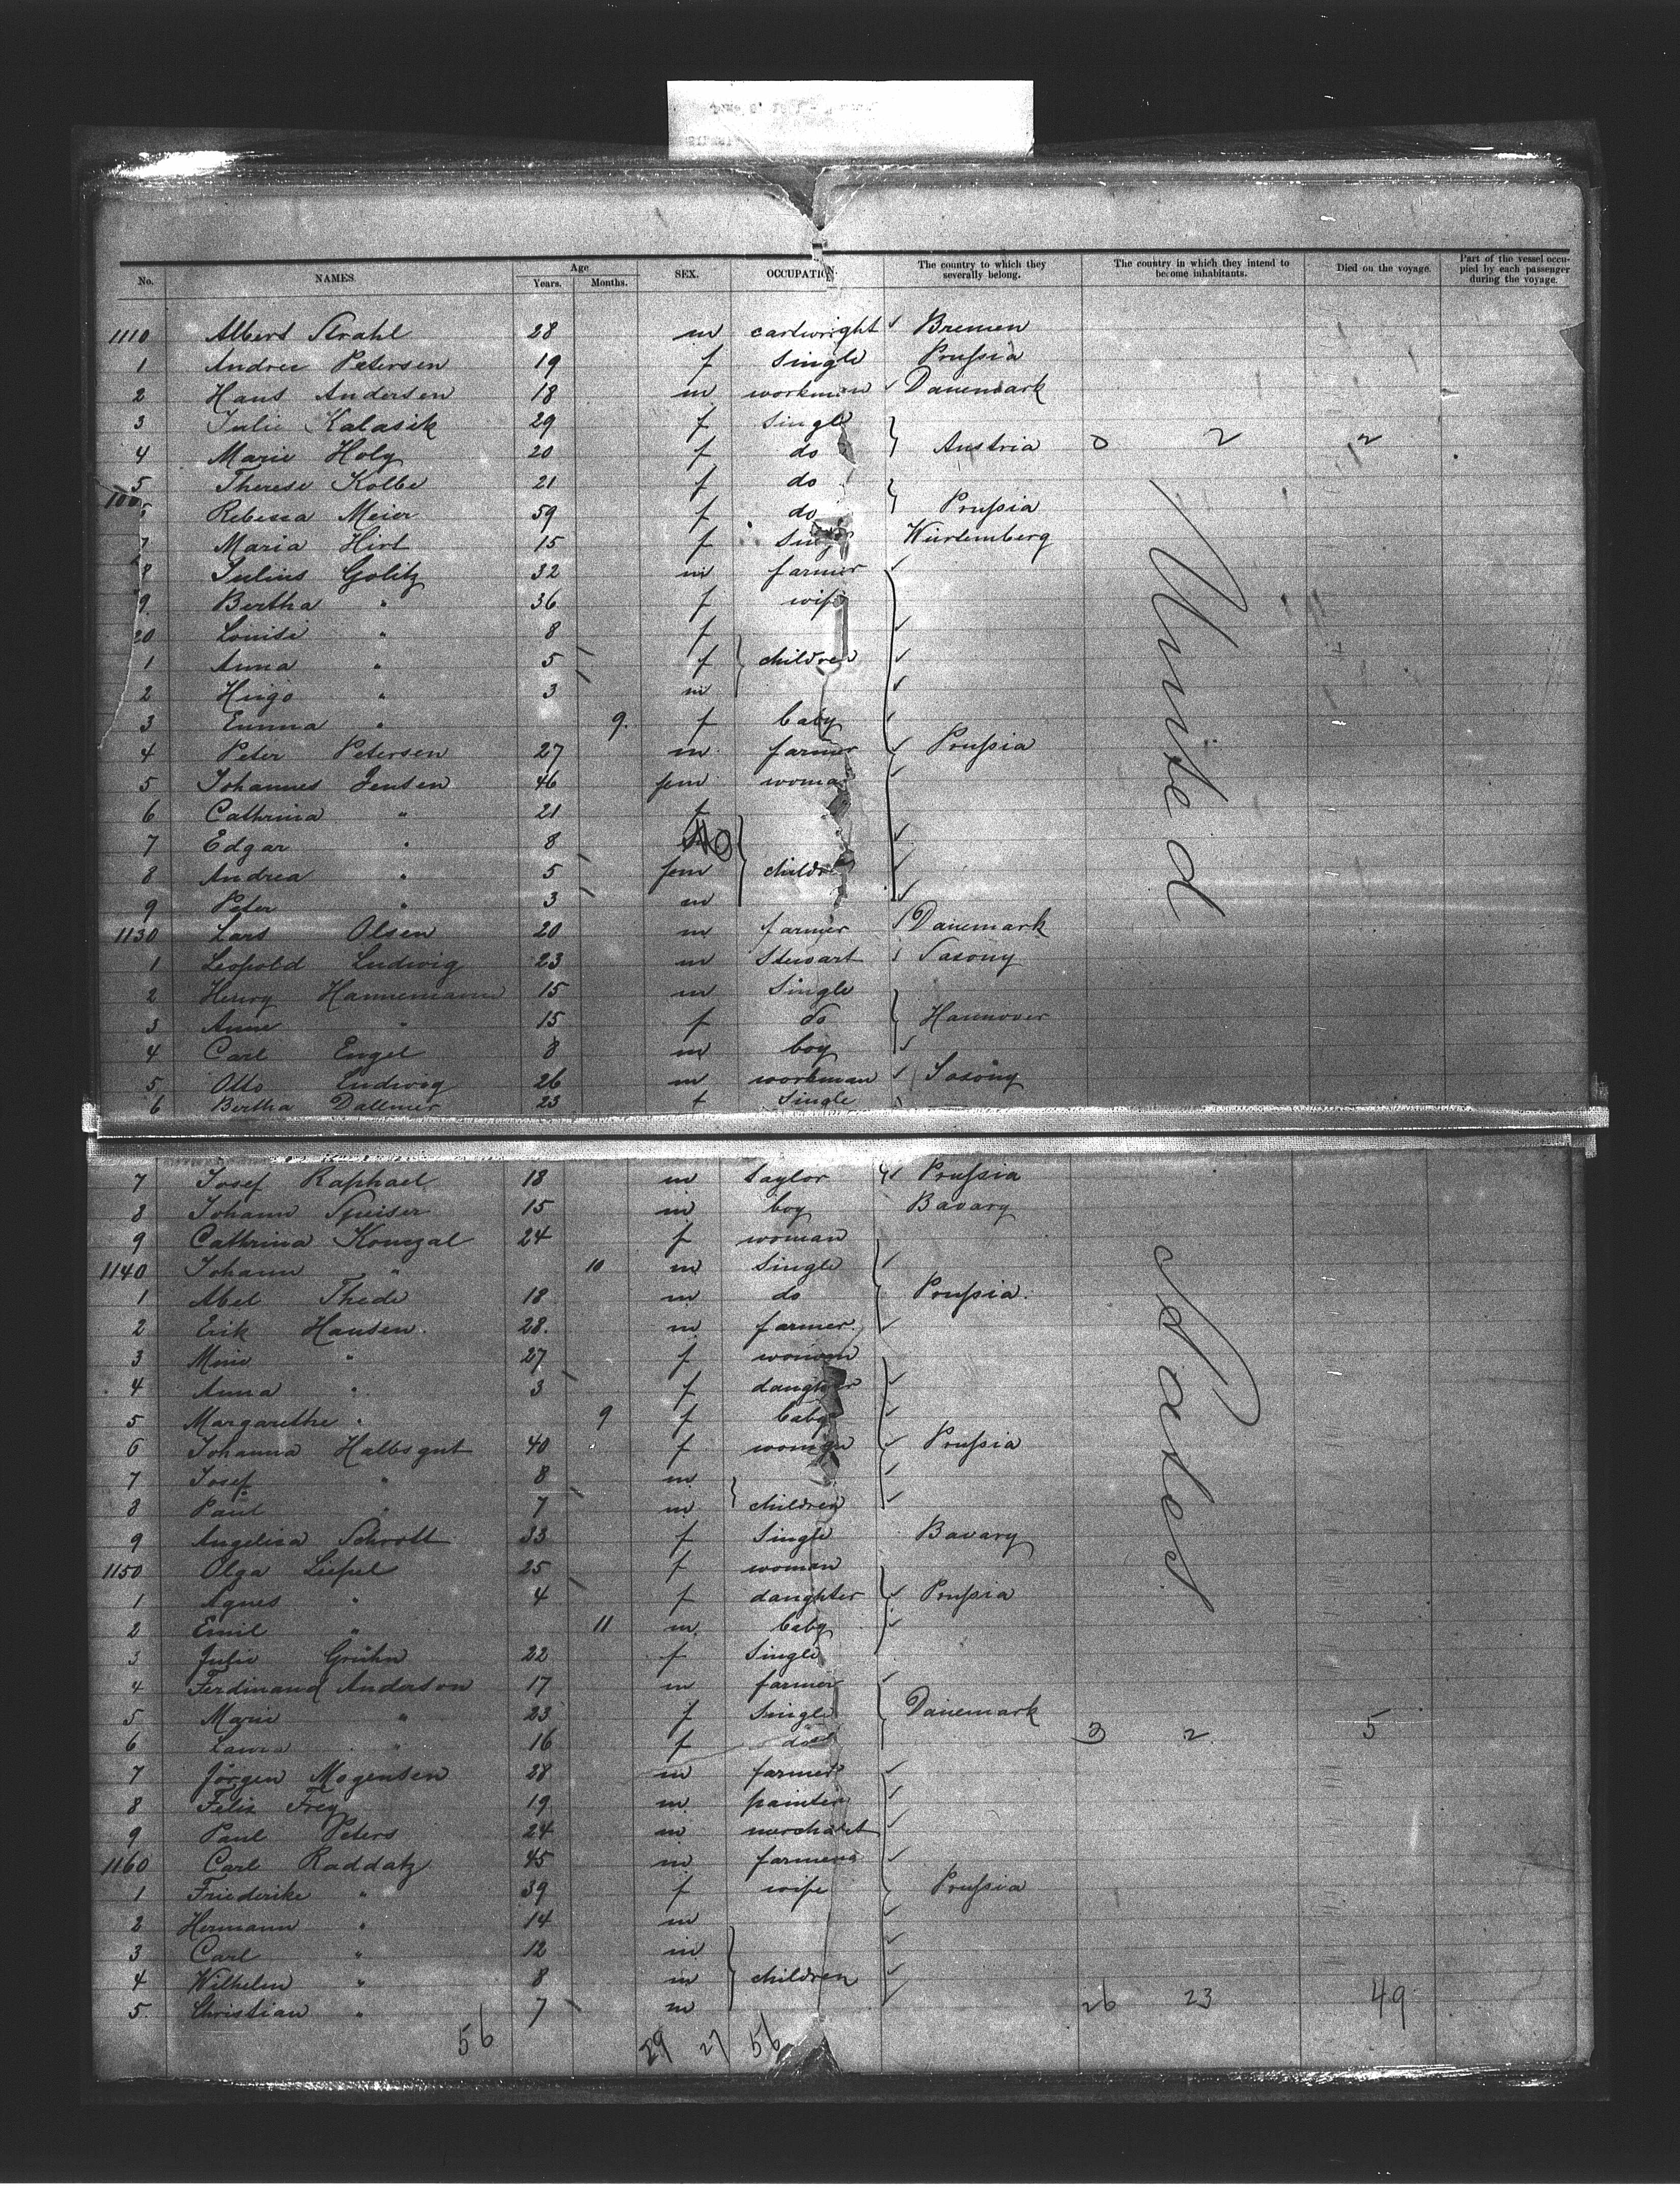 No. NAMES. Age Years. Months. SEX. OCCUPATION. The country to which they severally belong. The country in which they intend to become inhabitants. Died on the voyage. Part of the vessel occupied by each passenger during the voyage.
1110 Albert Strahl 28 m cartwright Bremen
1 Andree Petersen 19 f Single Prußia
2 Hans Andersen 18 m workman Danemark
3 Julie Kalasik 29 f Single
4 Marie Holy 20 f do Austria 0 2 2
5 Therese Kolbe 21 f do
6 Rebecca Meier 59 f do Prußia
7 Maria Hirt 15 f Wurtemberg
8 Julius Golitz 32 m farmer
9 Bertha " 36 f wife
20 Louise " 8 f
1 Anna " 5 f children
2 Hugo " 3 m
3 Emma " 9. f baby
4 Peter Petersen 27 m farmer Prußia
5 Johannes Jensen 46 fem woman
6 Cathrina " 21 f
7 Edgar " 8
8 Andrea " 5 fem children
9 Peter " 3 m
1130 Lars Olsen 20 m farmer Danemark
1 Leopold Ludwig 23 m Stewart Saxony
2 Henry Hannemann 15 m Single
3 Anne " 15 f do Hannover
4 Carl Engel 8 m boy
5 Otto Ludwig 26 m workman Saxony
6 Bertha Dallmer 23 f Single
United
7 Josef Raphael 18 m taylor Prußia
8 Johann Speiser 15 m boy Bavary
9 Cathrina Konezal 24 f woman
1140 Johann " 10 m Single
1 Abel Thede 18 m do Prußia.
2 Erik Hansen. 28. m farmer.
3 Mine " 27 f woman
4 Anna " 3 f daughter
5 Margarethe " 9 f baby
6 Johanna Halbsgut 40 f woman Prußia
7 Josef " 8 m
8 Paul " 7 m children
9 Angelica Schrott 33 f Single Bavary
1150 Olga Liepel 25 f woman
1 Agnes " 4 f daughter Prußia
2 Emil " 11 m. baby
3 Julie Gruhn 22 f Single
4 Ferdinand Anderson 17 m farmer
5 Marie " 23 f Single Danemark
6 Laura " 16 f do 3 2. 5
7 Jörgen Mogensen 28 m farmer
8 Felix Frey 19. m painter
9 Paul Peters 24 m merchant
1160 Carl Raddatz 45 m farmer
1 Friederike " 39 f wife Prußia
2 Hermann " 14 m
3 Carl " 12 m
4 Wilhelm " 8 m children
5. Christian " 7 m 26 23 49
States
56 29 27 56